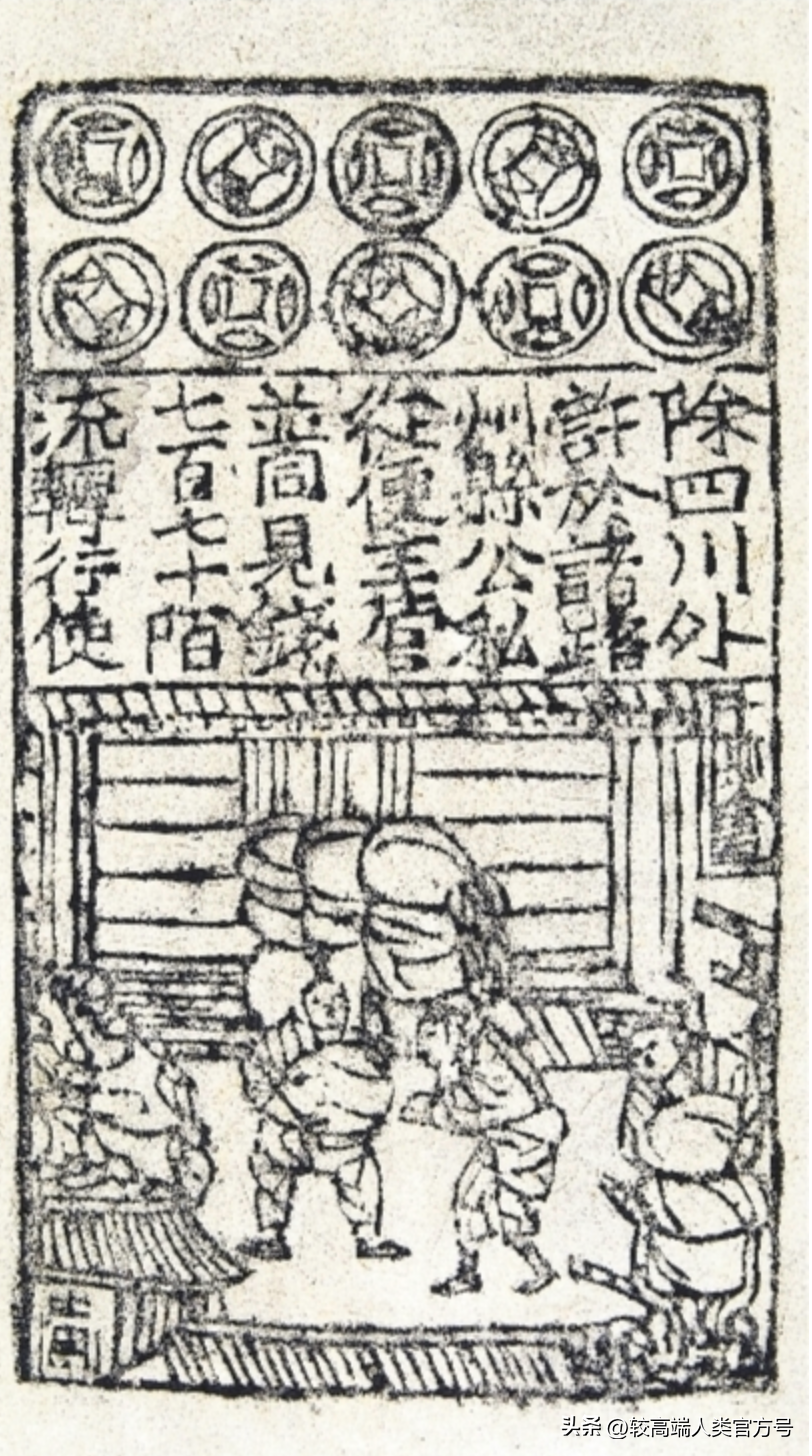 除四川外
許於諸路
州縣公私
從便主管
並同見錢
七百七十陌
流轉行使
头条 @较高端人类官方号